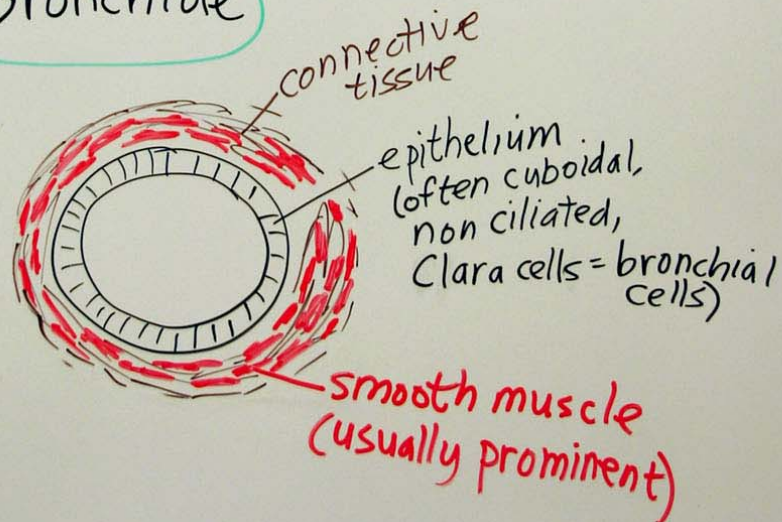 Bronchiole
connective
tissue
epithelium
(often cuboidal,
non ciliated,
Clara cells = bronchial
cells)
smooth muscle
(usually prominent)